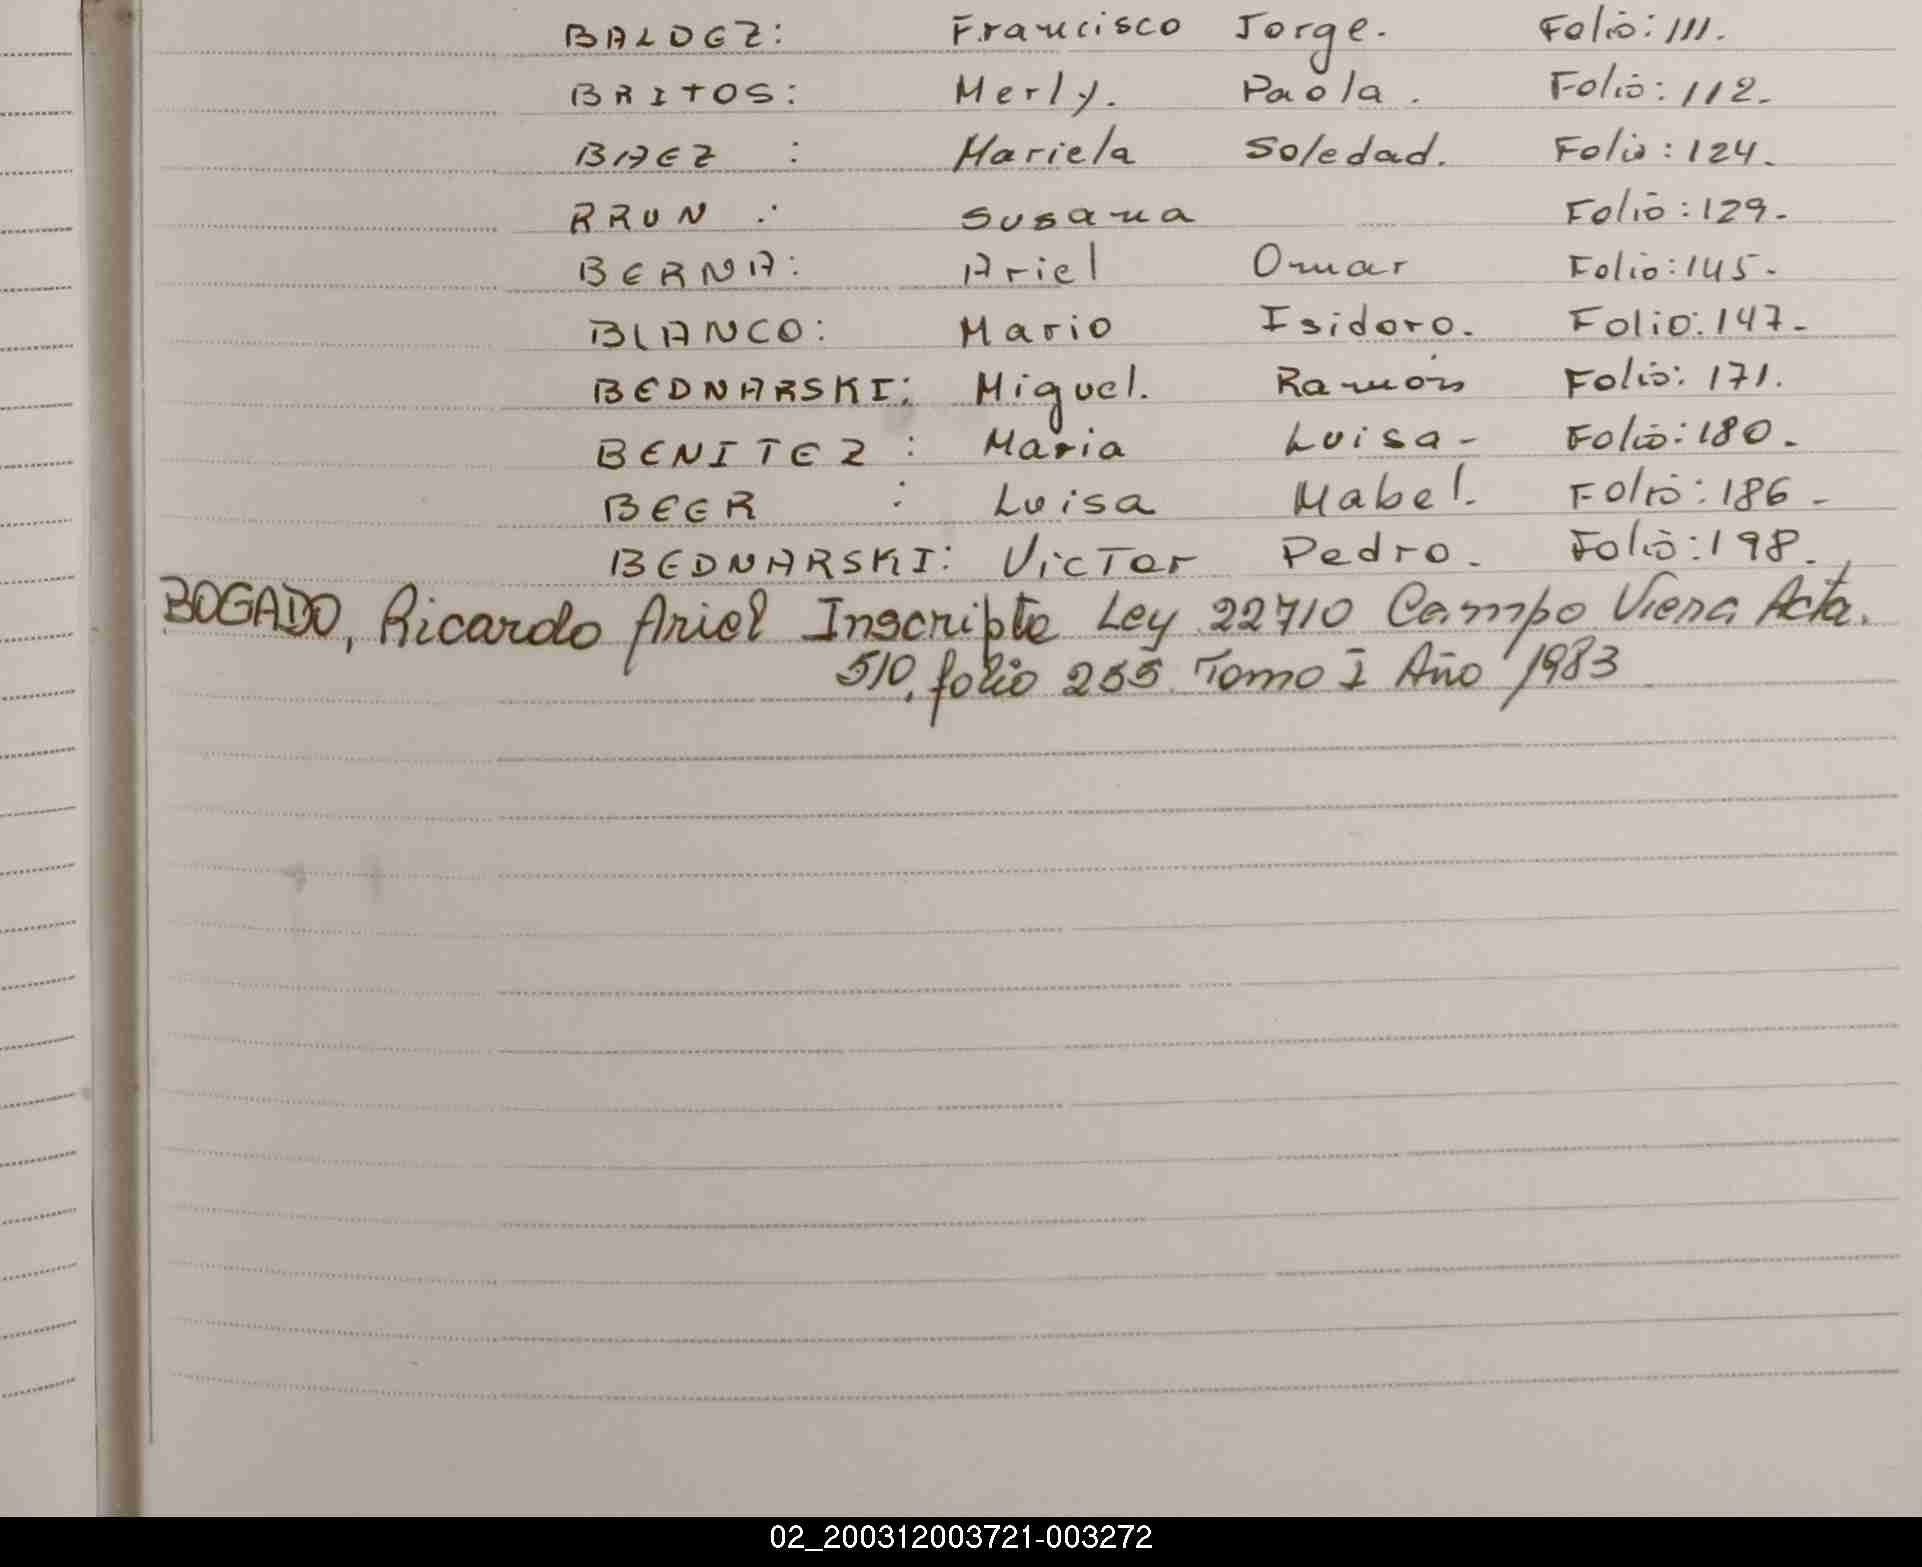 BALDEZ: Francisco Jorge. Folio: 111.
BRITOS: Merly. Paola. Folio: 112.
BAEZ : Mariela Soledad. Folio: 124.
RRUN : Susana Folio: 129.
BERNA: Ariel Omar Folio: 145.
BLANCO: Mario Isidoro. Folio: 147.
BEDNARSKI: Miguel. Ramón Folio: 171.
BENITEZ : Maria Luisa- Folio: 180.
BEER : Luisa Mabel. Folio: 186-
BEDNARSKI: Victor Pedro. Folio: 198.
BOGADO, Ricardo Ariel Inscripto Ley 22710 Campo Viera Acta.
510, folio 255 Tomo I Año 1983
02_200312003721-003272